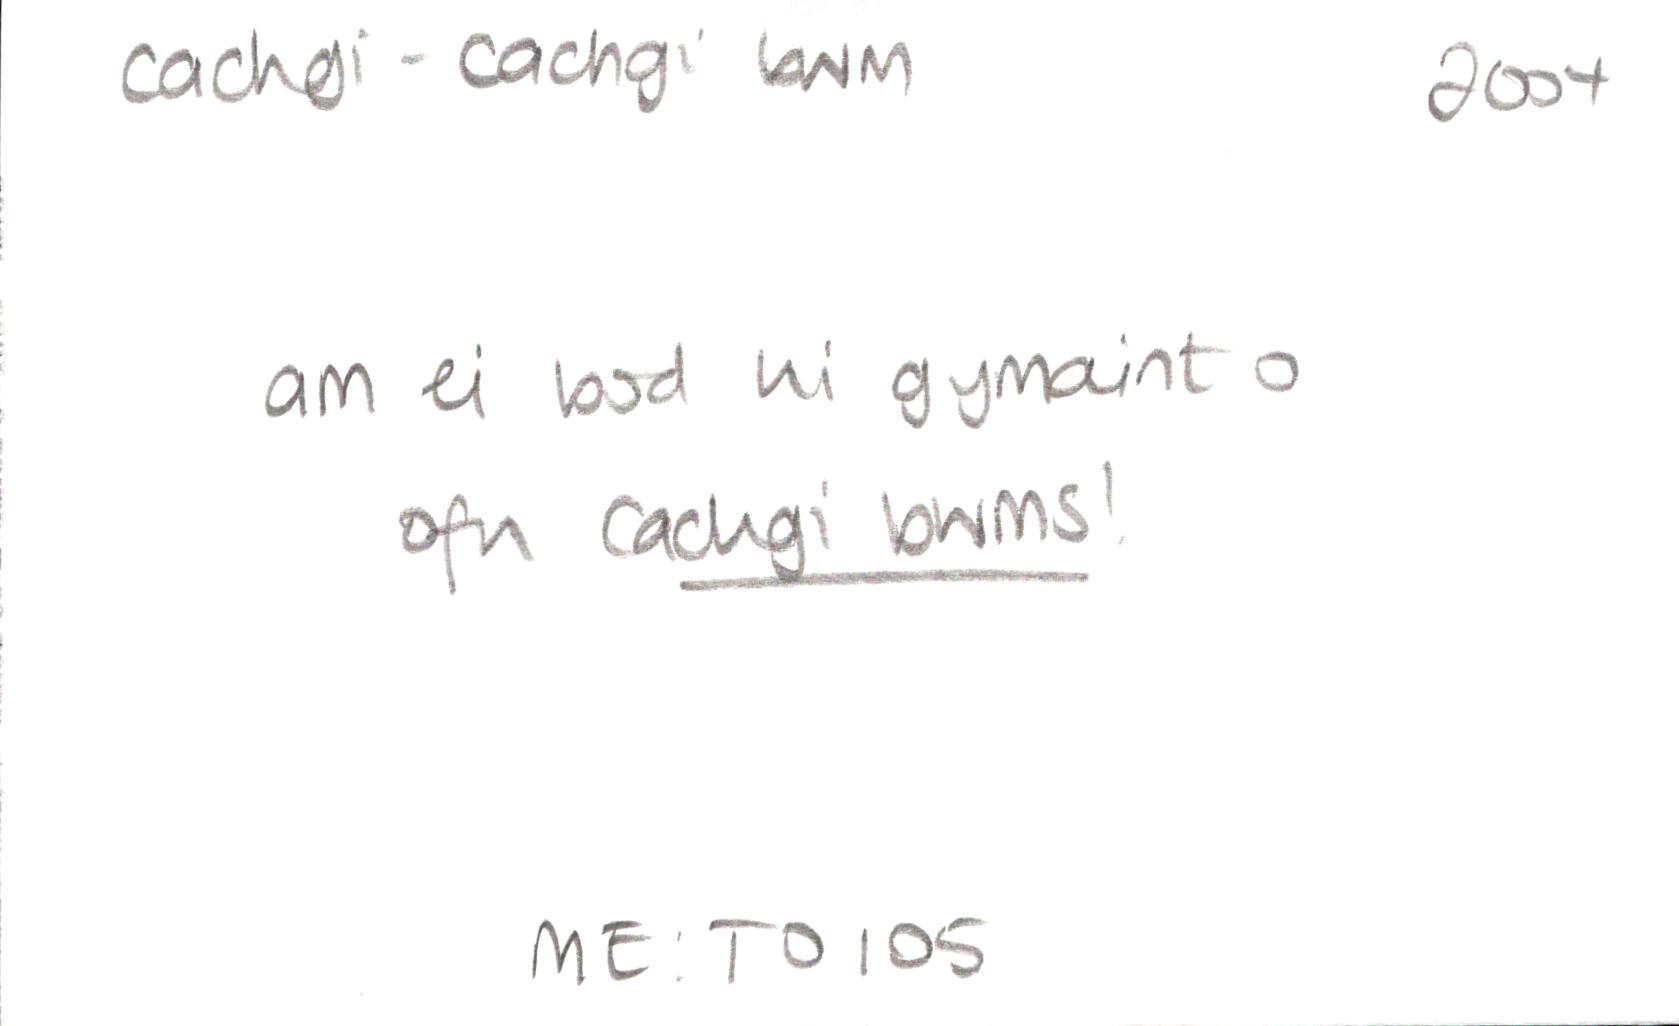 cachgi - cachgi bwm 2004
am ei bod hi gymaint o
ofn cachgi bwms!
ME: TO 105